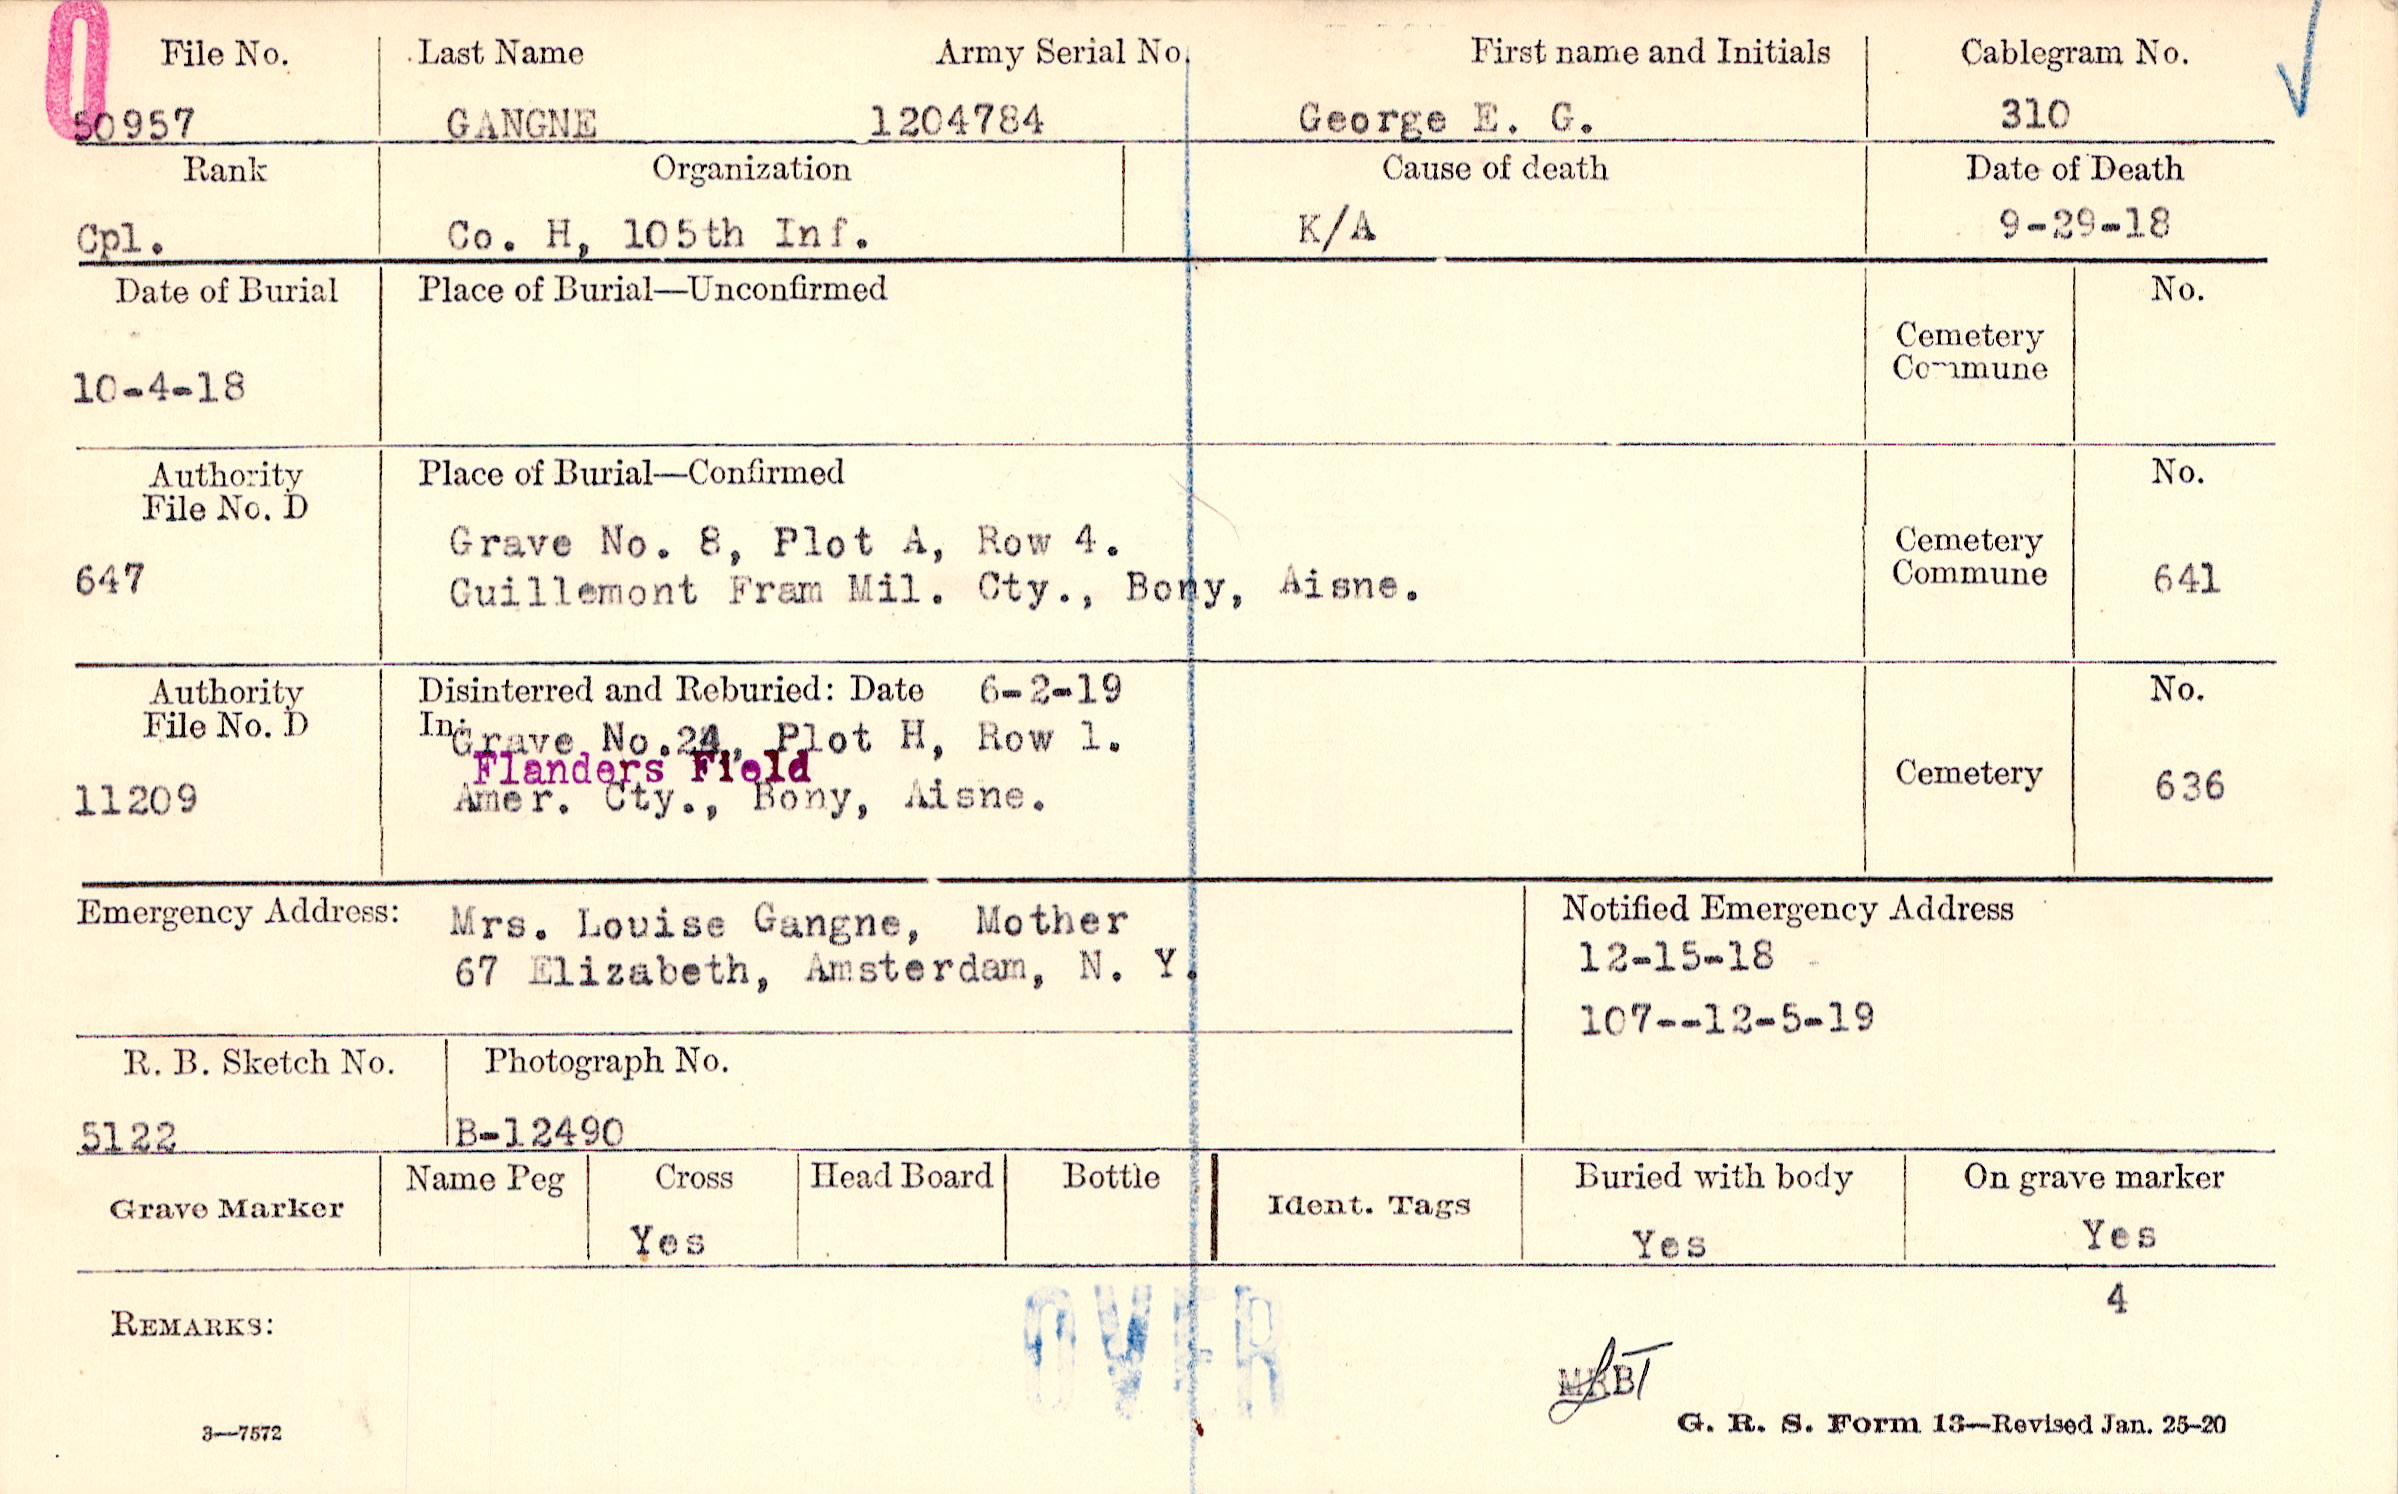 File No. Last Name Army Serial No. First name and Initials Cablegram No.
50957 GANGNE 1204784 George E. G. 310
Rank Organization Cause of death Date of Death
Cpl. Co. H, 105th Inf. K/A 9-29-18
Date of Burial Place of Burial—Unconfirmed No.
Cemetery
Commune
10-4-18
Authority Place of Burial—Confirmed No.
File No. D
Grave No. 8, Plot A, Row 4. Cemetery
647 Guillemont Fram Mil. Cty., Bony, Aisne. Commune 641
Authority Disinterred and Reburied: Date 6-2-19 No.
File No. D In: Grave No. 24, Plot H, Row 1.
Flanders Field Cemetery 636
11209 Amer. Cty., Bony, Aisne.
Emergency Address: Mrs. Louise Gangne, Mother Notified Emergency Address
67 Elizabeth, Amsterdam, N. Y. 12-15-18
107--12-5-19
R. B. Sketch No. Photograph No.
5122 B-12490
Grave Marker Name Peg Cross Head Board Bottle Ident. Tags Buried with body On grave marker
Yes Yes Yes
4
REMARKS: OVER
3—7572 G. R. S. Form 13—Revised Jan. 25-20